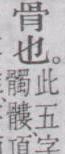 骨也。
此五字
髑髏頂